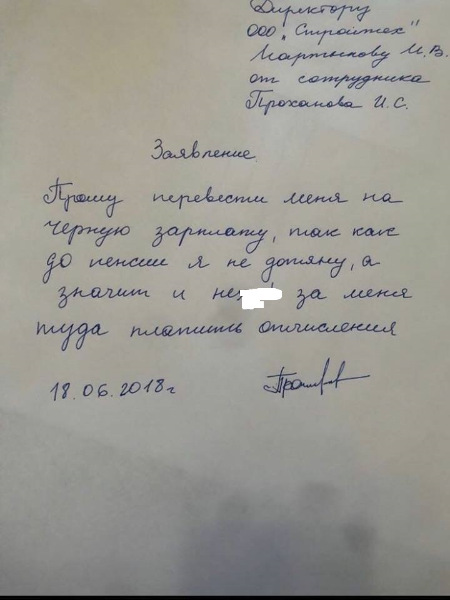 Директору
ООО „Стройтех"
Мартынову И.В.
от сотрудника
Проханова И.С.
Заявление
Прошу перевести меня на
черную зарплату, так как
до пенсии я не дотяну, а
значит и не за меня
туда платить отчисления
18.06.2018г